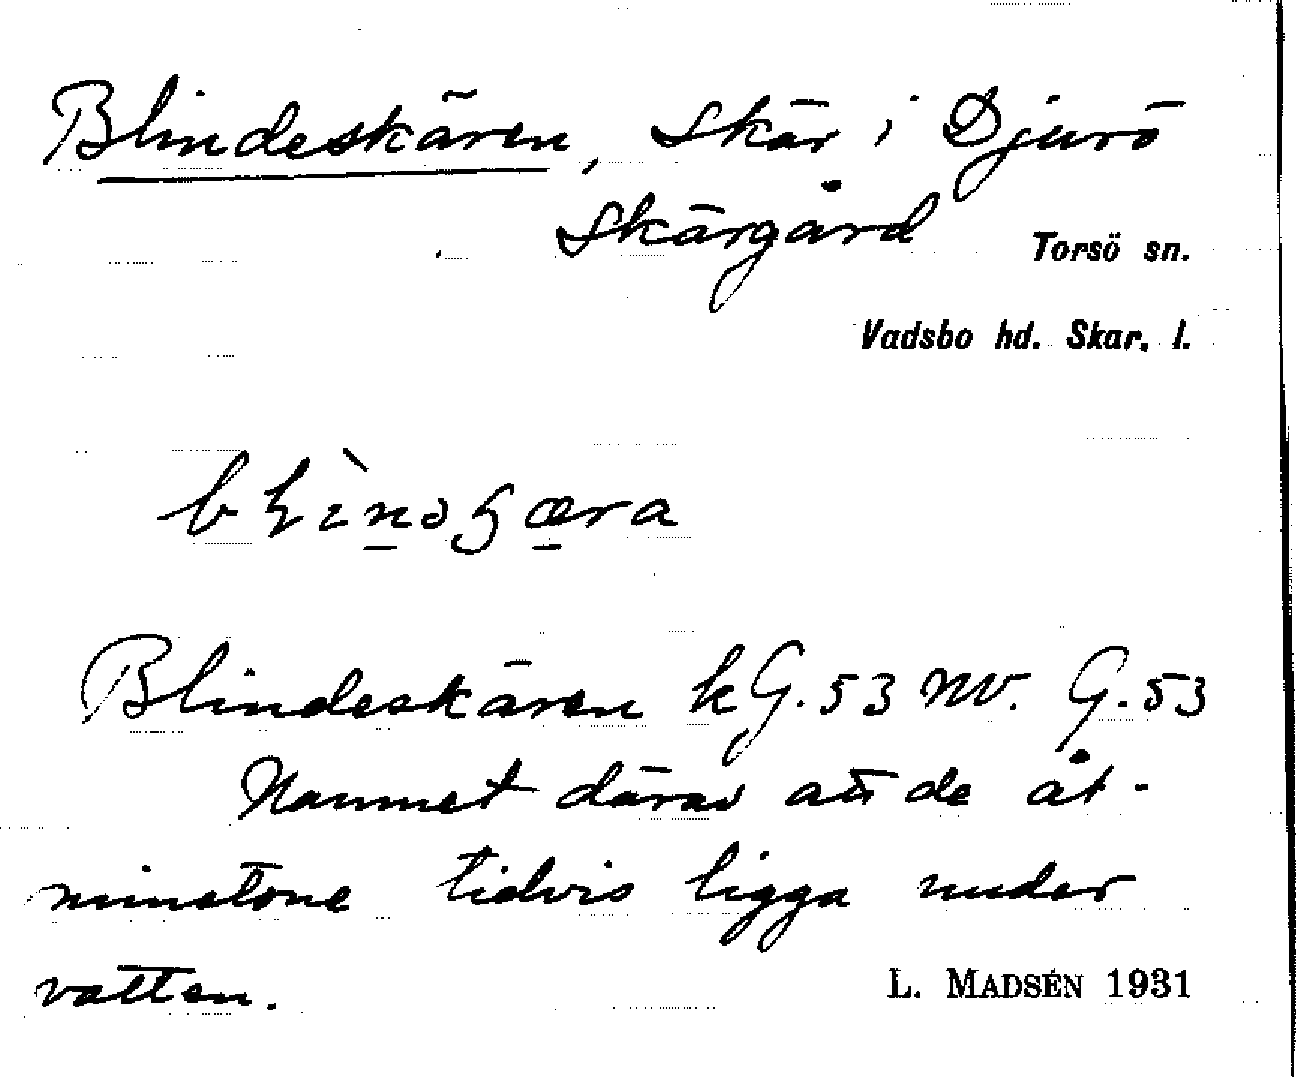 Blindeskären, skär i Djurö
skärgård
Torsö sn.
Vadsbo hd. Skar. l.
Blindeskären kG.53 NV. G.53
Namnet därav att de åt-
minstone tidvis ligga under
vatten.
L. MADSÉN 1931